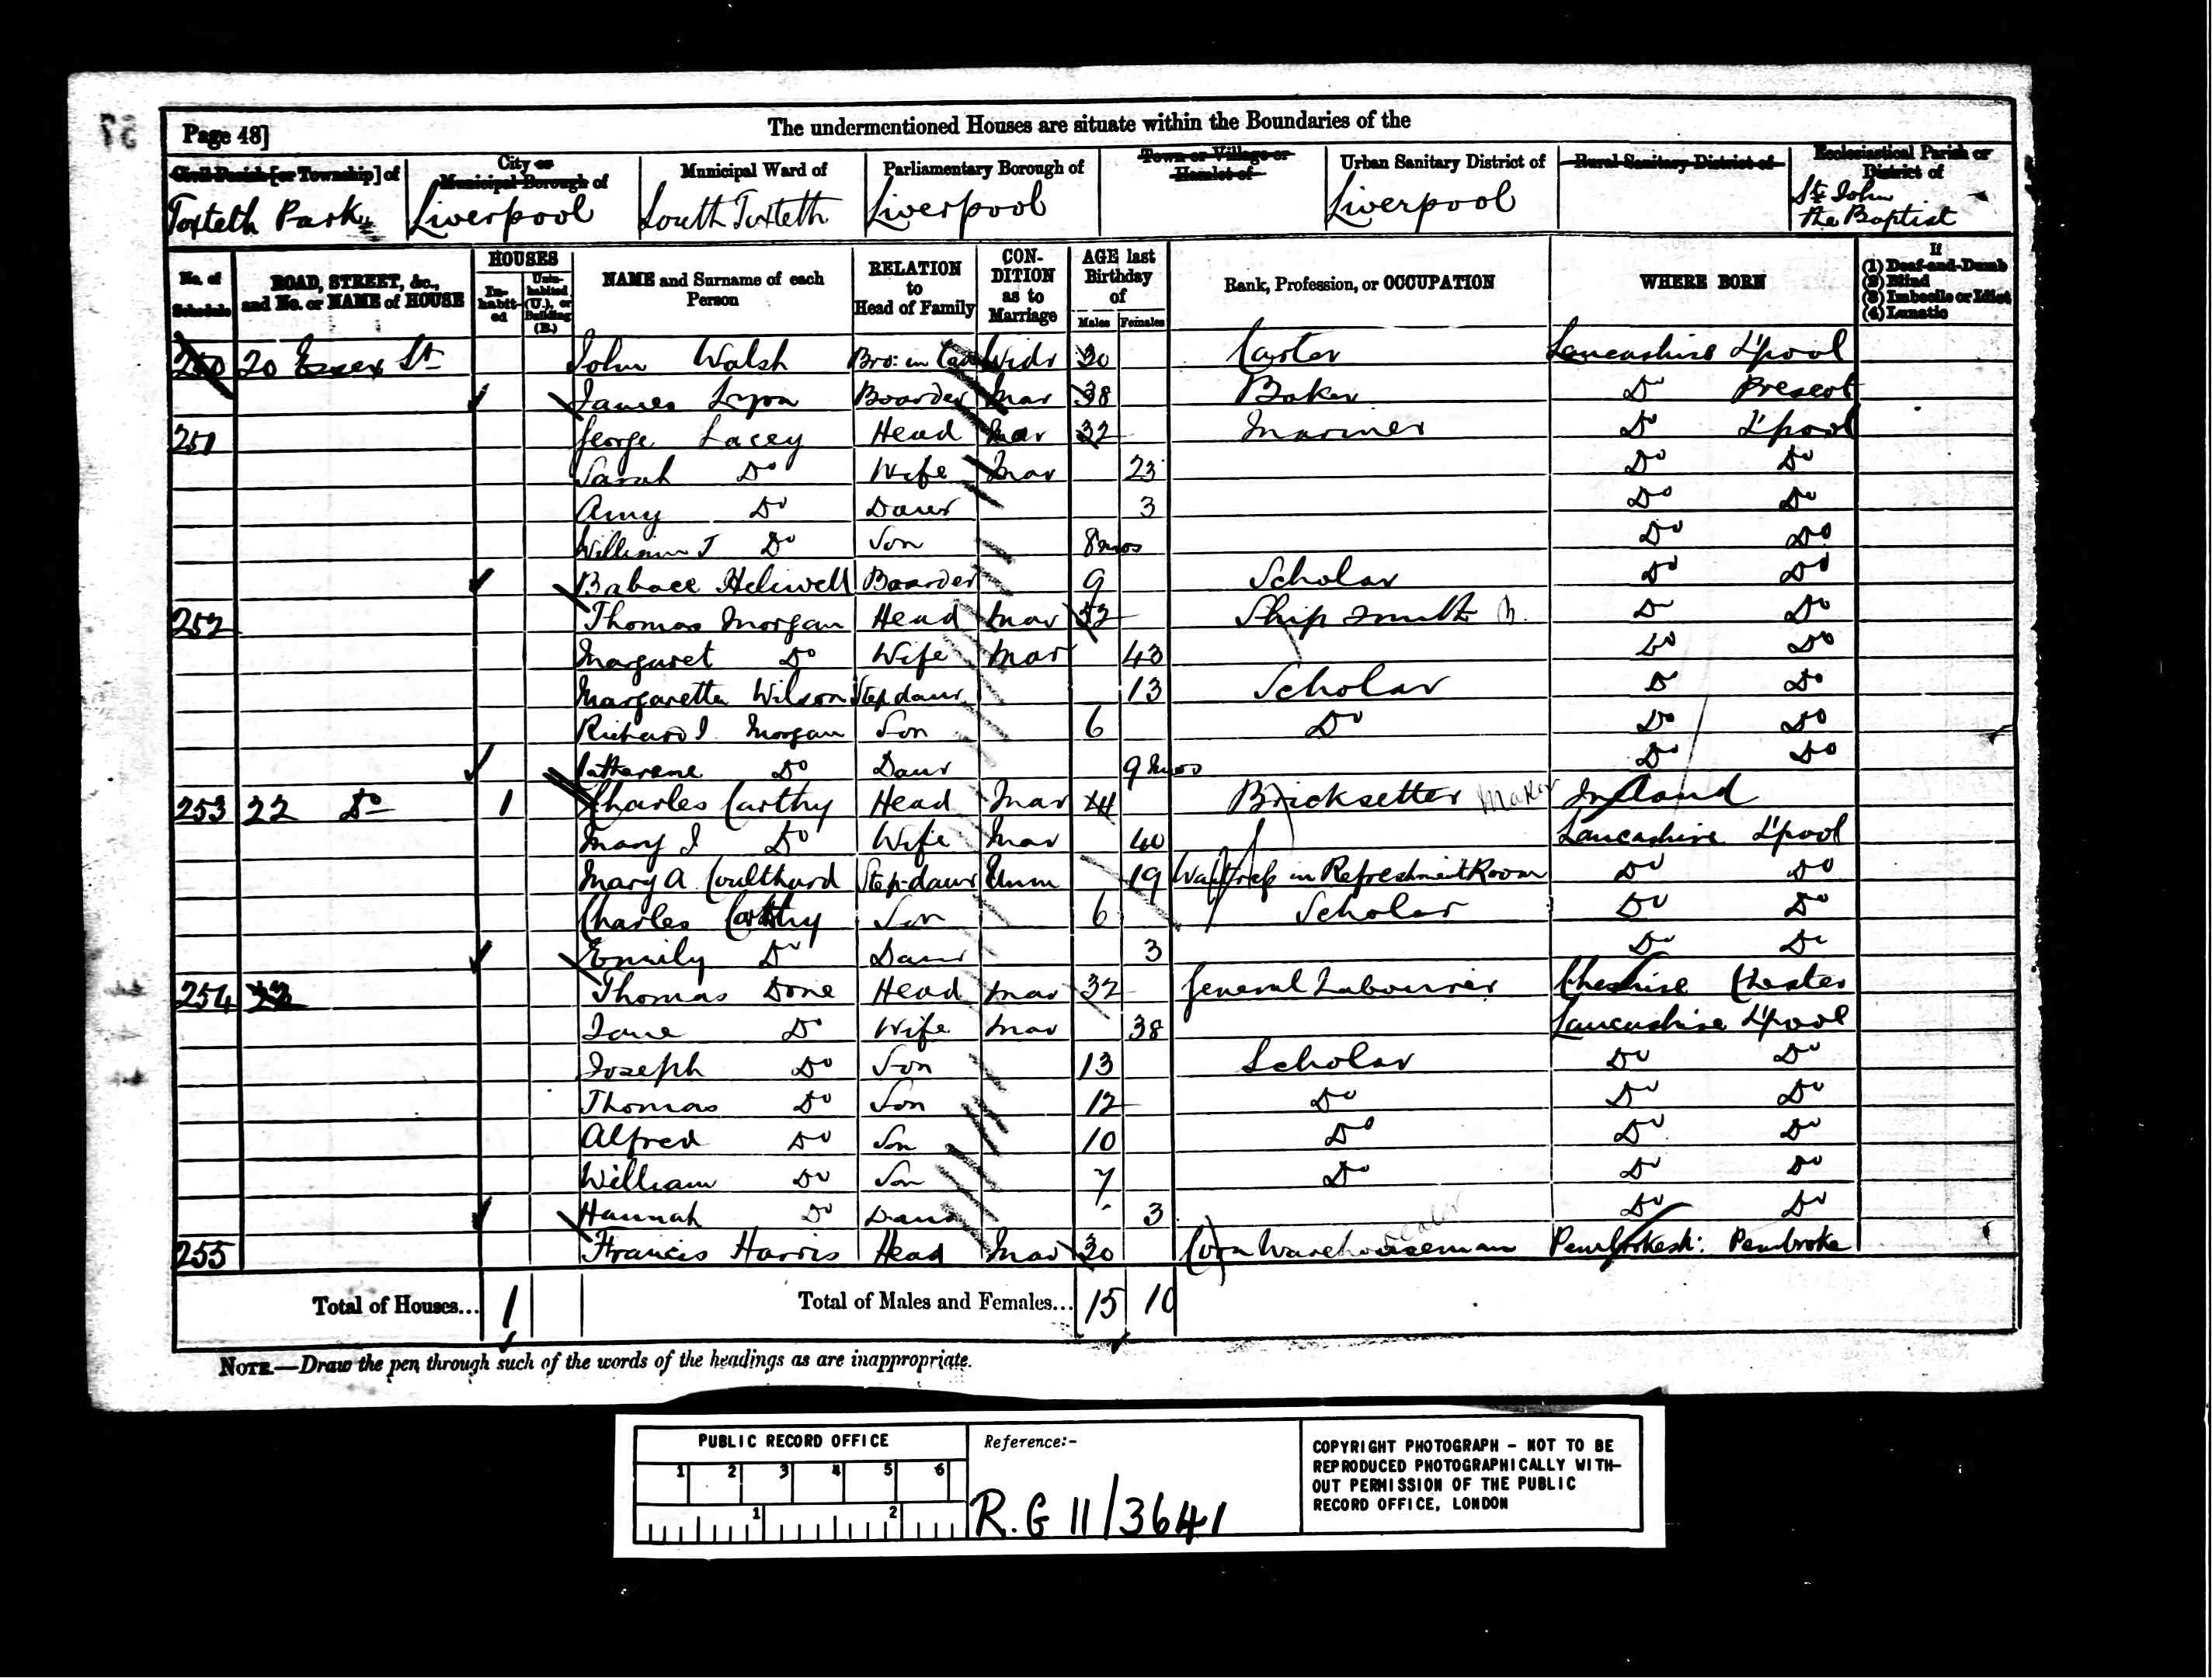 Page 48]
The undermentioned Houses are situate within the Boundaries of the
Civil Parish [or Township] of
City or Municipal Borough of
Municipal Ward of
Parliamentary Borough of
Town or Village or Hamlet of
Urban Sanitary District of
Rural Sanitary District of
Ecclesiastical Parish or District of
Toxteth Park
Liverpool
South Toxteth
Liverpool
Liverpool
St John the Baptist
No. of Schedule
ROAD, STREET, &c., and No. or NAME of HOUSE
HOUSES
In-habit-ed
Unin-habited (U.), or Building (B.)
NAME and Surname of each Person
RELATION to Head of Family
CON-DITION as to Marriage
AGE last Birthday of
Males
Females
Rank, Profession, or OCCUPATION
WHERE BORN
If
(1) Deaf-and-Dumb
(2) Blind
(3) Imbecile or Idiot
(4) Lunatic
250 20 Essex St John Walsh Bro: in Law Widr 30 Carter Lancashire L'pool
James Lyon Boarder Mar 38 Baker Do Prescot
251 George Lacey Head Mar 32 Mariner Do L'pool
Sarah Do Wife Mar 23 Do Do
Amy Do Daur 3 Do Do
William J Do Son 8mos Do Do
Heliwell Boarder 9 Scholar Do Do
252 Thomas Morgan Head Mar 32 Ship Smith Do Do
Margaret Do Wife Mar 43 Do Do
Margaretta Wilson Step daur 13 Scholar Do Do
Richard J. Morgan Son 6 Do Do Do
Catherene Do Daur 9 mos Do Do
253 22 Do 1 Charles Carthy Head Mar 44 Bricksetter Maker Ireland
Mary J Do Wife Mar 40 Lancashire L'pool
Mary A Coulthard Step-daur Unm 19 Waitress in Refreshment Room Do Do
Charles Carthy Son 6 Scholar Do Do
Emily Do Daur 3 Do Do
254 22 Thomas Done Head Mar 32 General Labourer Cheshire Chester
Jane Do Wife Mar 38 Lancashire L'pool
Joseph Do Son 13 Scholar Do Do
Thomas Do Son 12 Do Do Do
Alfred Do Son 10 Do Do Do
William Do Son 7 Do Do Do
Hannah Do Daur 3 Do Do
255 Francis Harris Head Mar 30 Corn Warehouseman Pembrokesh: Pembroke
Total of Houses... 1 Total of Males and Females... 15 10
NOTE.—Draw the pen through such of the words of the headings as are inappropriate.
PUBLIC RECORD OFFICE
1 2 3 4 5 6
1 2
Reference:-
R.G 11/3641
COPYRIGHT PHOTOGRAPH - NOT TO BE
REPRODUCED PHOTOGRAPHICALLY WITH-
OUT PERMISSION OF THE PUBLIC
RECORD OFFICE, LONDON